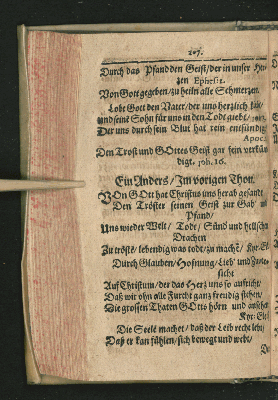 207.
Durch das Pfand den Geist/ der in unser Her-
zen Ephes. 1.
Von Gott gegeben/ zu heiln alle Schmerzen.
Lobt Gott den Vater/ der uns herzlich
und seinē Sohn für uns in den Tod giebt/
Der uns durch sein Blut hat rein entsündig
Apoc.
Den Trost und GOttes Geist gar sein verkün-
digt. Joh. 16.
Ein Anders/ Im vorigen Thon.
VOn GOtt hat Christus uns herab gesandt
Den Tröster seinen Geist zur Gab und
Pfand/
Uns wieder Welt/ Todt/ Sünd und hellsche
Drachen
Zu tröstē/ lebendig was todt/ zu machē/
Durch Glauben/ Hofnung/ Lieb und
sicht
Auf Christum/ der das Herz uns so aufricht/
Daß wir ohn alle Furcht ganz freudig stehen/
Die grossen Thaten GOtts hörn und
Die Seele machet/ daß der Leib recht lebt/
Daß er kan fühlen/ sich bewegt und webt/